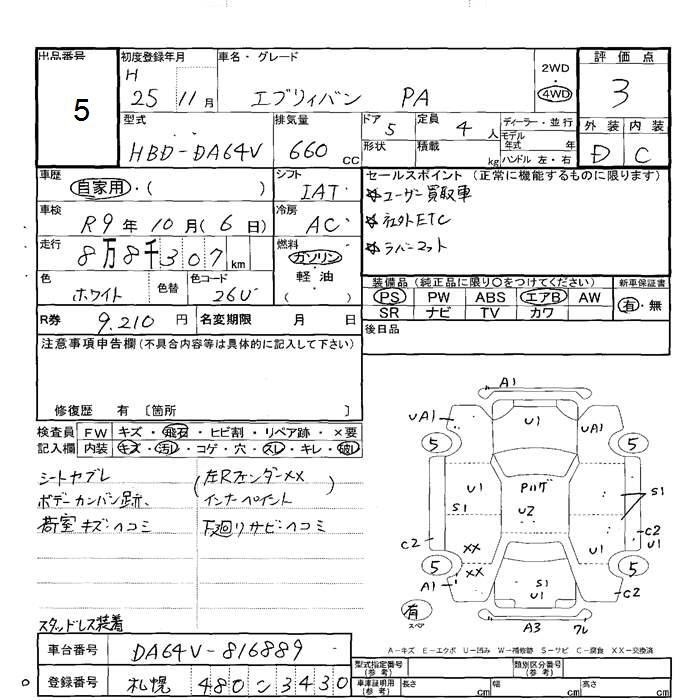 出品番号
5
初度登録年月
H 25 11 月
車名・グレード
エブリィバン PA
2WD
4WD
評価点
3
外装 内装
D C
型式
HBD-DA64V
排気量
660 cc
ドア 5
定員 4 人
ディーラー・並行
モデル年式 年
形状
積載 kg
ハンドル 左・右
車歴
自家用・( )
シフト
IAT
セールスポイント (正常に機能するものに限ります)
☆ユーザー買取車
☆社外ETC
☆ラバーマット
車検
R9 年 10 月 ( 6 日)
冷房
AC
走行
8万8千307 km
燃料
ガソリン
軽・油
( )
色
ホワイト
色替
色コード
26U
装備品 (純正品に限り○をつけてください)
新車保証書
PS PW ABS エアB AW
有・無
SR ナビ TV カワ
R券 9,210 円
名変期限 月 日
後日品
注意事項申告欄 (不具合内容等は具体的に記入して下さい)
修復歴 有 〔箇所 〕
検査員記入欄
FW キズ・飛石・ヒビ割・リペア跡・×要
内装 キズ・汚レ・コゲ・穴・スレ・キレ・破レ
シートヤブレ
ボデーカンバン跡
荷室キズ・ヘコミ
(左Rフェンダーxx
インナーペイント)
下廻りサビ・ヘコミ
スタッドレス装着
A1
UA1
U1
UA1
5
5
U1
Pハゲ
S1
U2
S1
C2
XX
U1
C2
U1
5
XX
5
A1
S1
U1
C2
有
スペア
A3
ワレ
A-キズ E-エクボ U-凹み W-補修跡 S-サビ C-腐食 XX-交換済
車台番号
DA64V-816889
登録番号
札幌 480 こ 3430
型式指定番号
(参考)
類別区分番号
(参考)
車庫証明用
(参考)
長さ cm
幅 cm
高さ cm